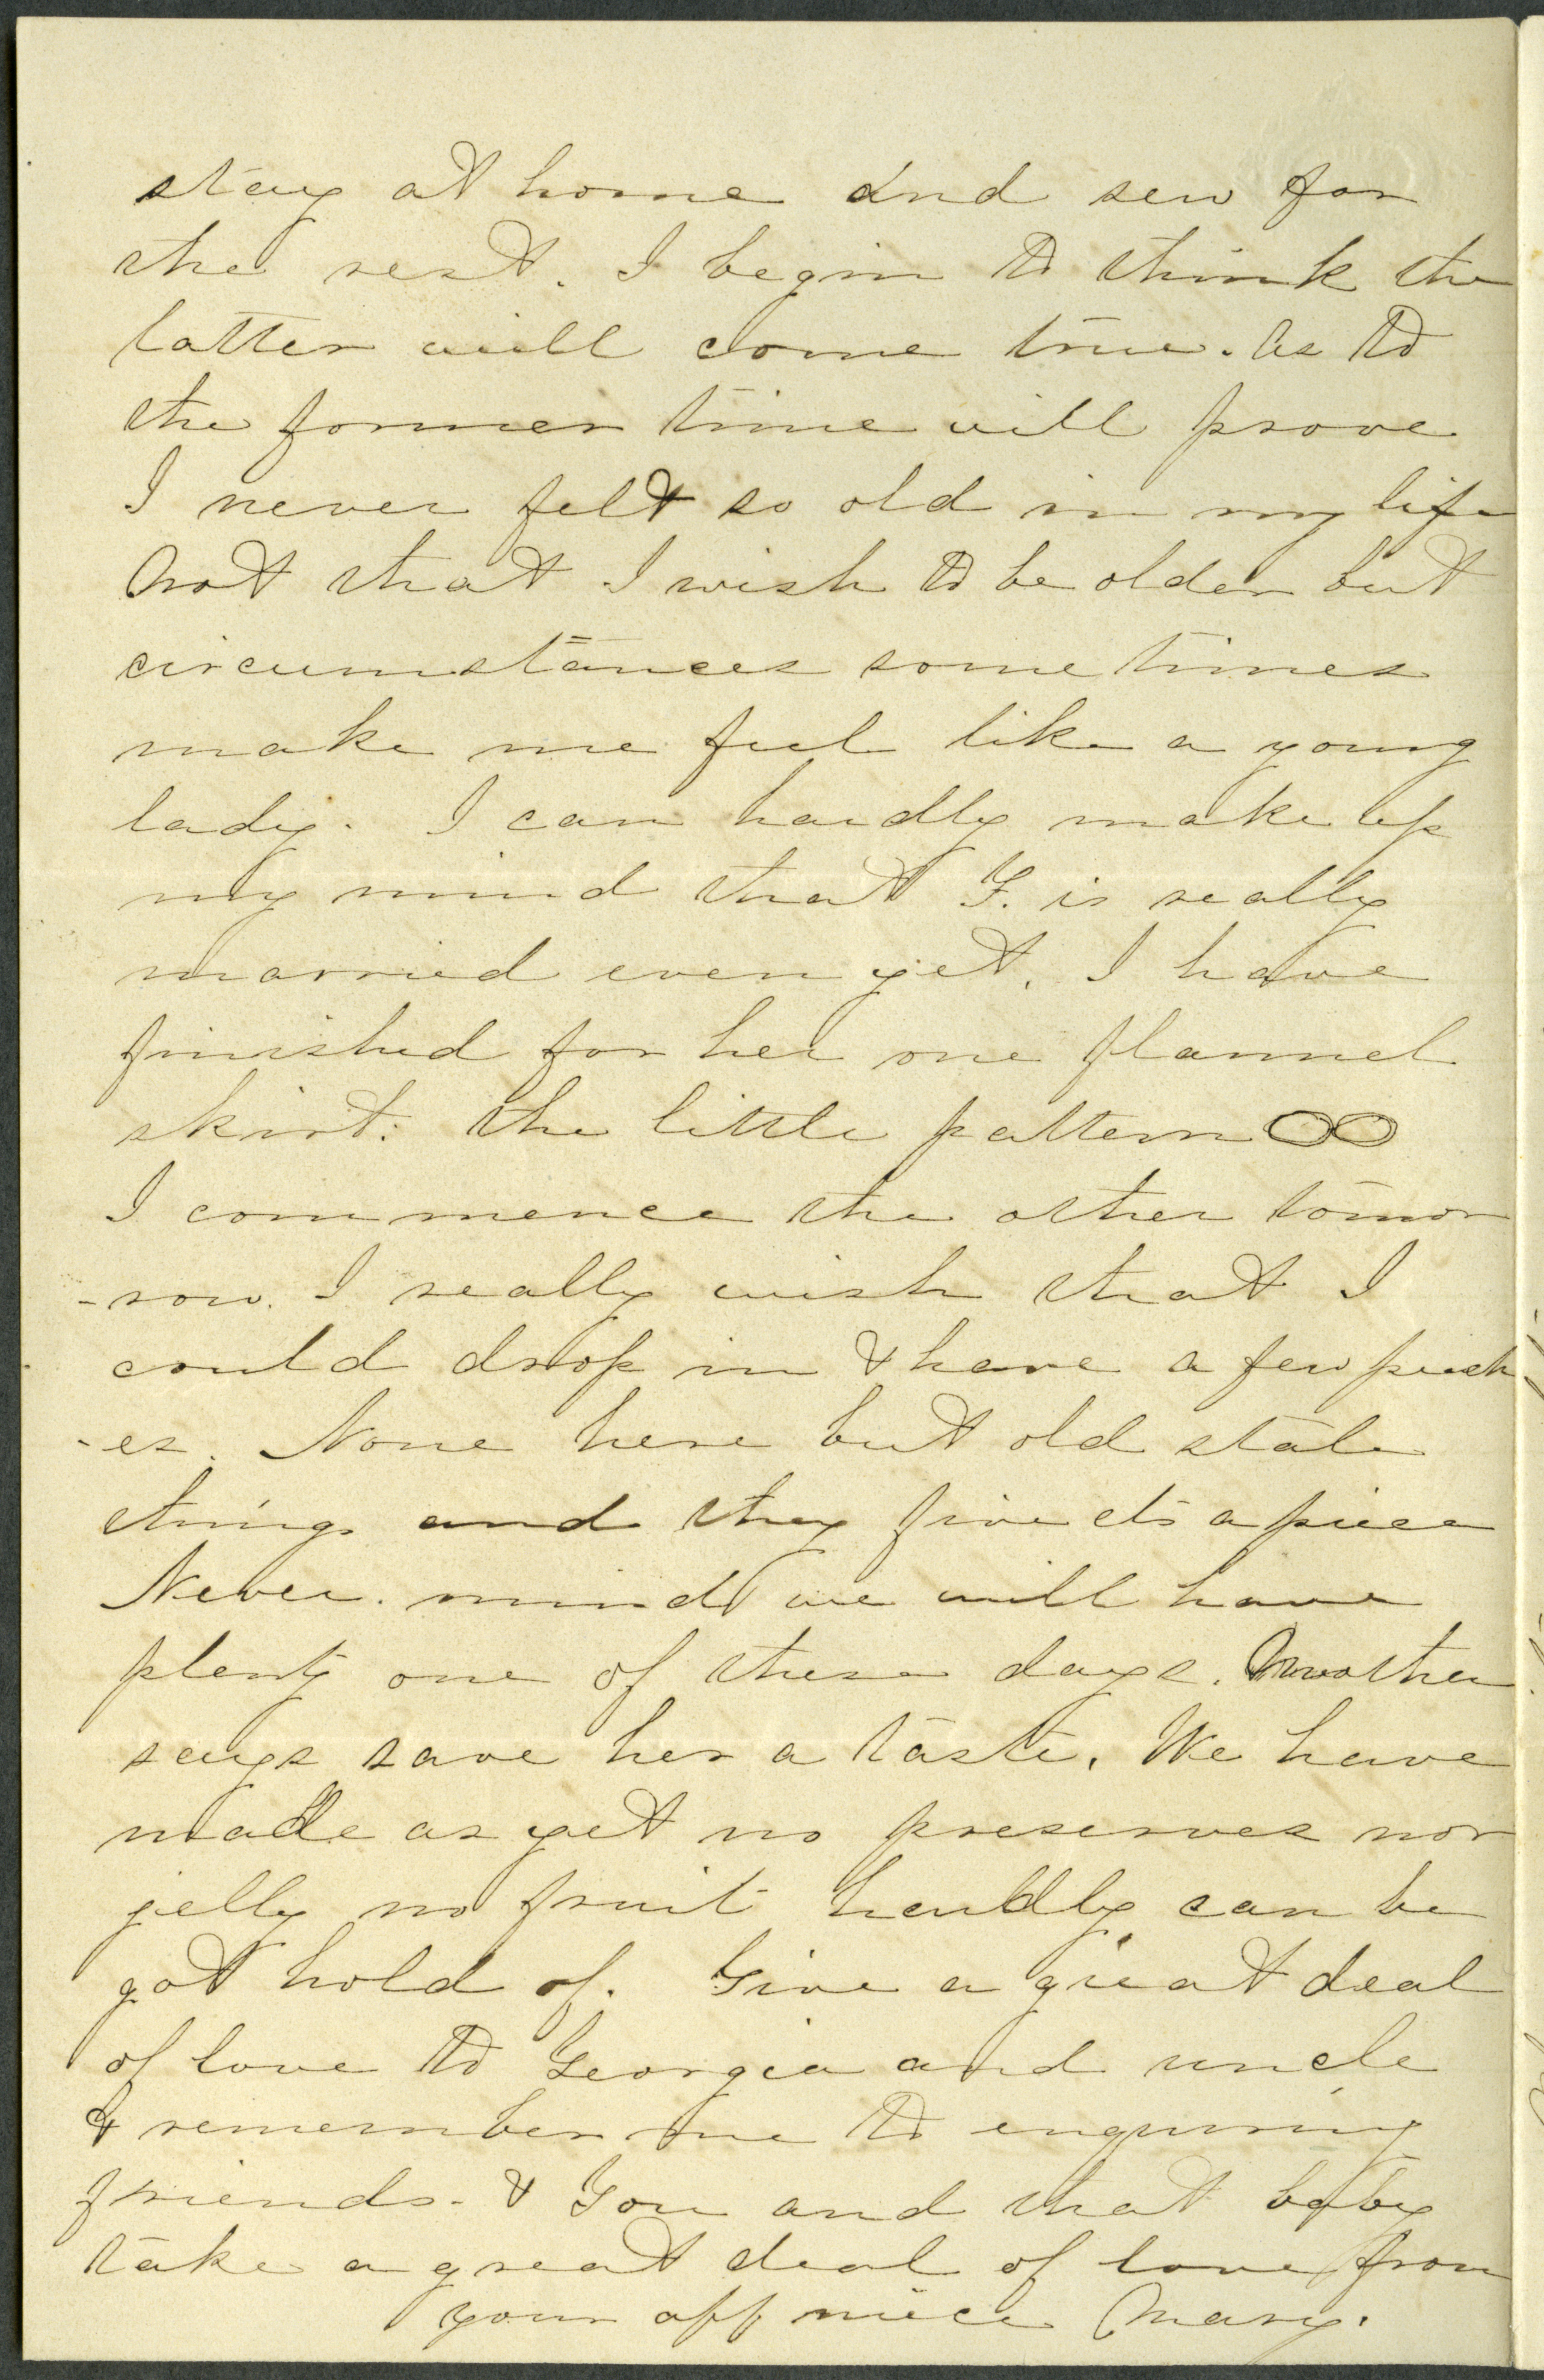 stay at home and sew for
the rest. I begin to think the
latter will come true. As to
the former time will prove
I never felt so old in my life
Not that I wish to be older but
circumstances some times
make me feel like a young
lady. I can hardly make up
my mind that F. is really
married even yet. I have
finished for her one flannel
skirt. the little pattern
I commence the other tomor
-row. I really wish that I
could drop in & have a few peach
-es. None here but old stale
things and they five cts a piece
Never mind we will have
plenty one of these days. Mother
says save her a taste. We have
made as yet no preserves nor
jelly no fruit hardly can be
got hold of. Give a great deal
of love to Georgia and uncle
& remember me to enquiring
friends - & You and that baby
take a great deal of love from
your aff niece Mary.